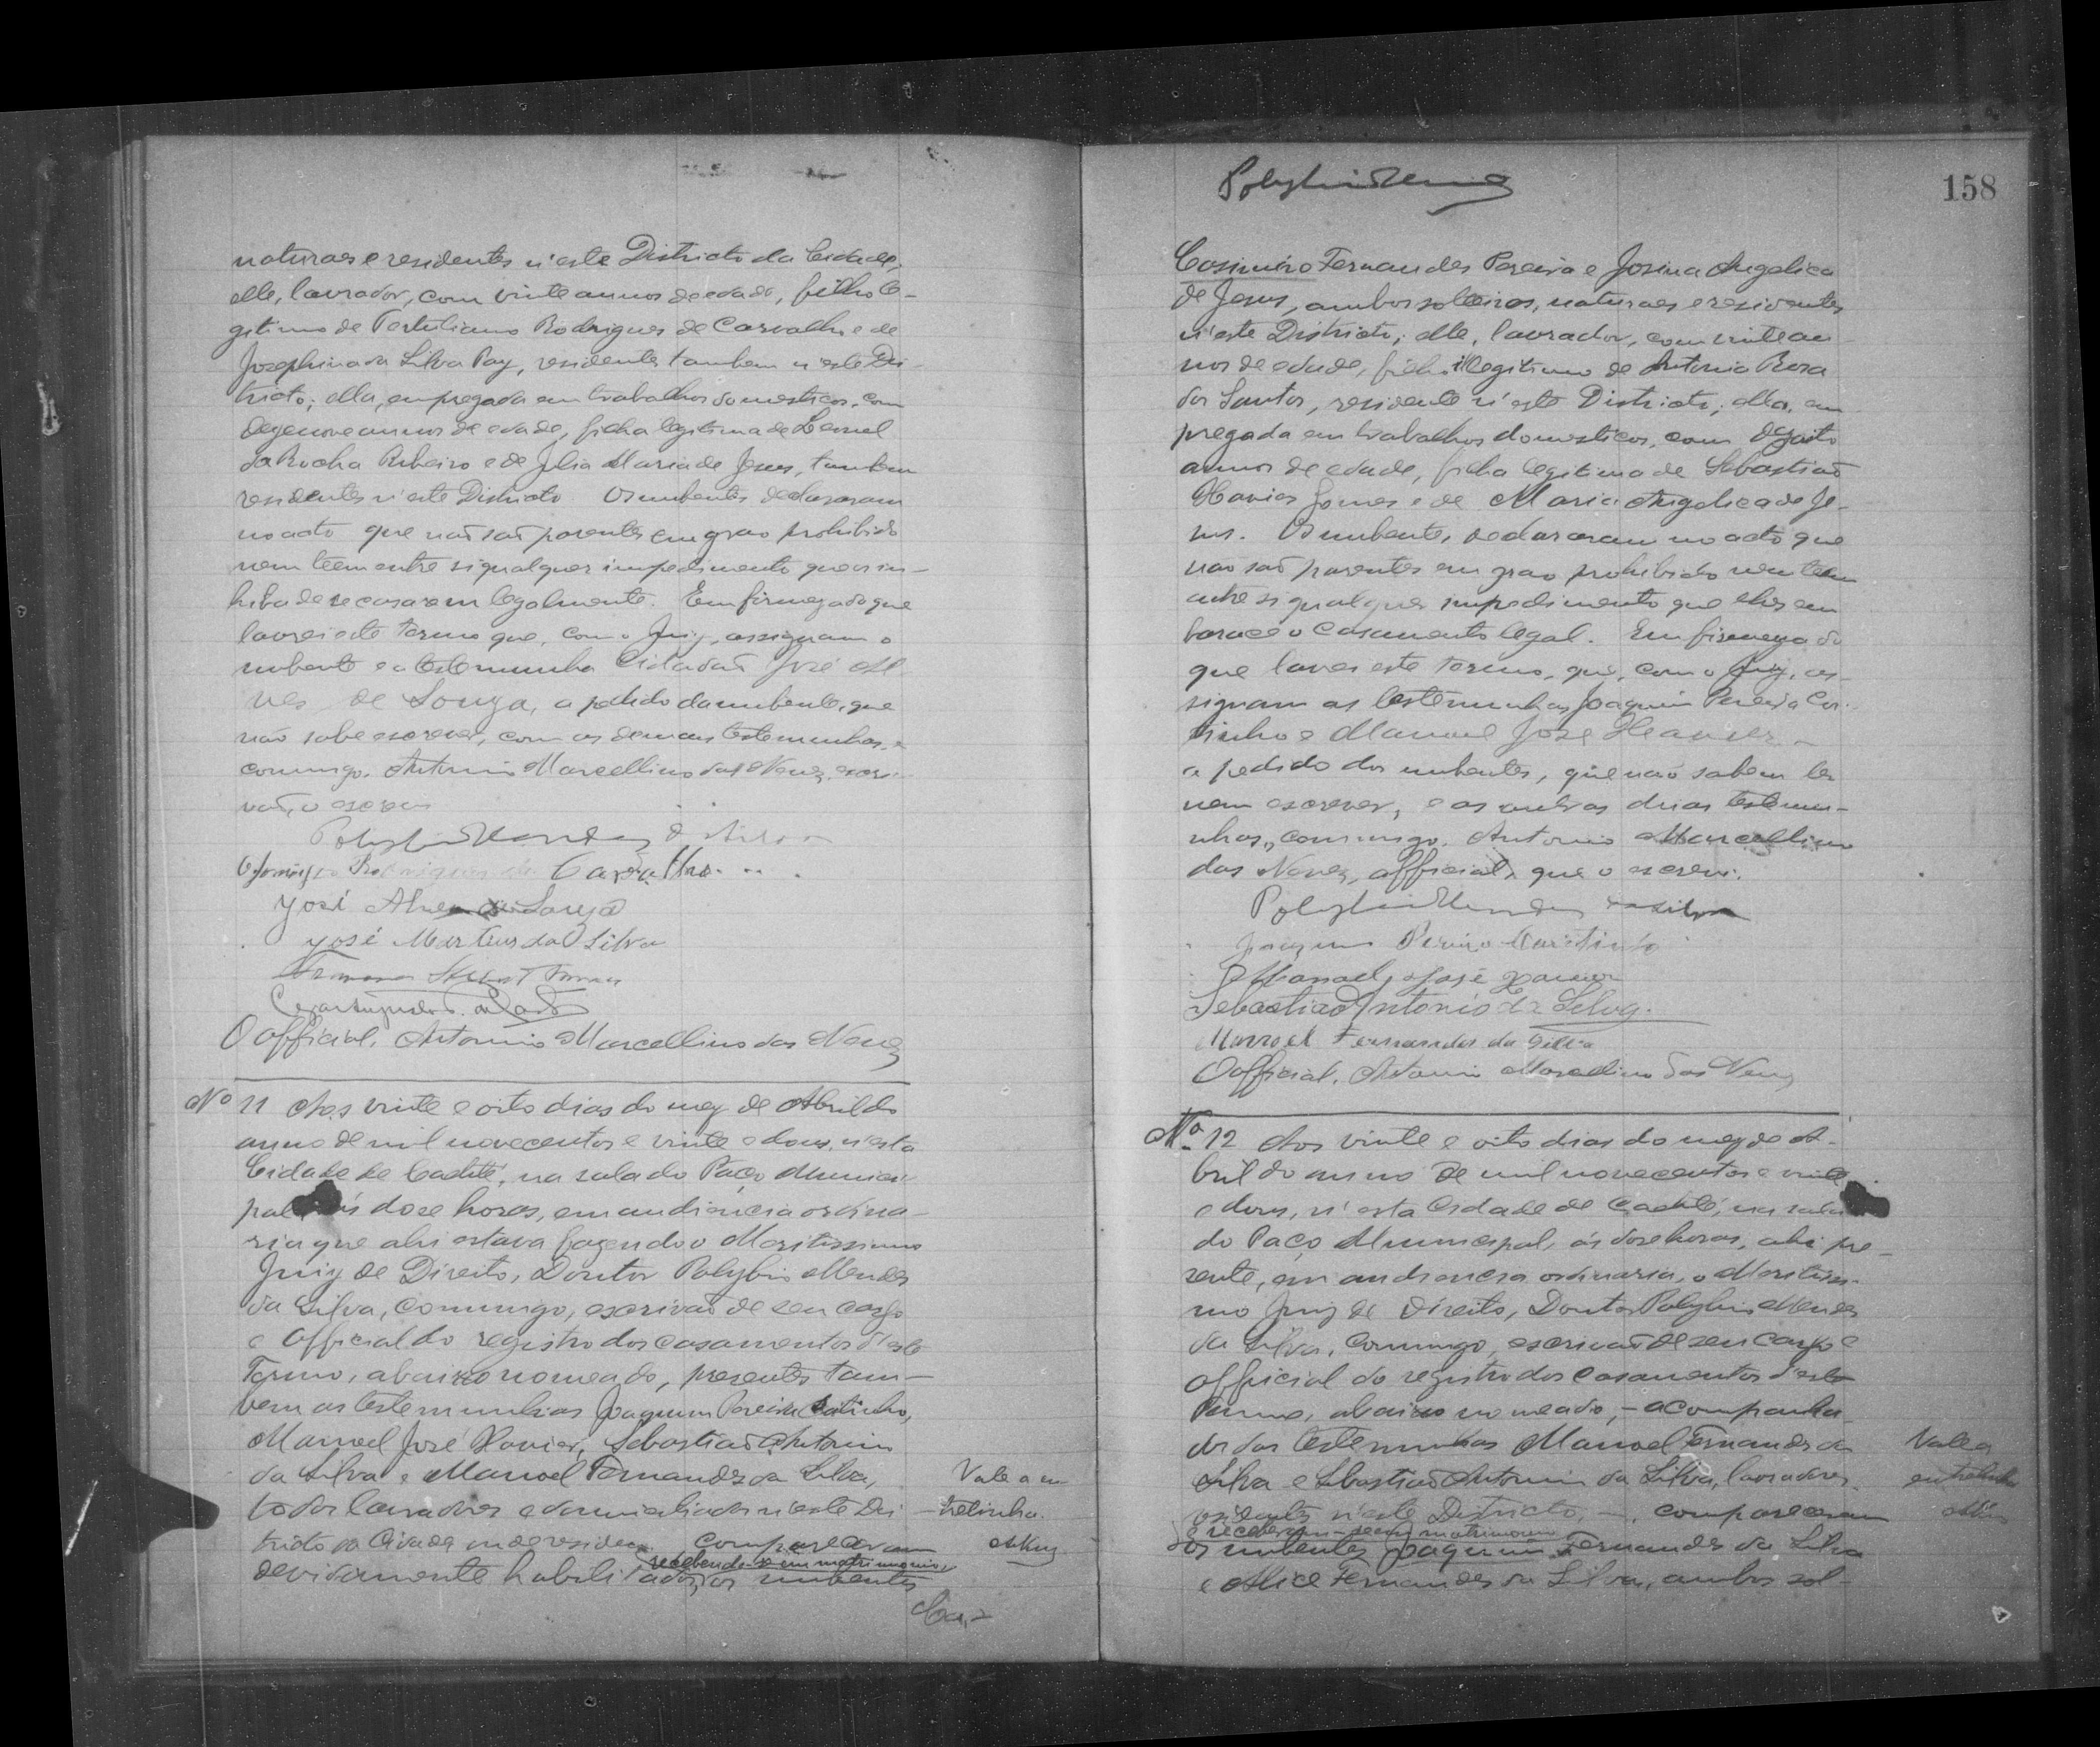 naturaes e residentes n'este Districto da Cidade,
elle, lavrador, com vinte annos de edade, filho le-
gitimo de Tertuliano Rodrigues de Carvalho e de
Josephina da Silva Pay, residentes tambem n'este Dis-
tricto; ella, empregada em trabalhos domesticos, com
dezenove annos de edade, filha legitima de Leonel
da Rocha Ribeiro e de Julia Maria de Jesus, tambem
residentes n'este Districto Os nubentes declararam
no acto que não são parentes em grao prohibido
nem teem entre si qualquer impedimento que os in-
hiba de se casarem legalmente. Em firmeza do que
lavrei este termo que, com o Juiz, assignam o
nubente e a testemunha Cidadão José Al-
ves de Souza, a pedido da nubente, que
não sabe escrever, com as demais testemunhas, e
commigo, Antonio Marcellino das Neves, escri-
vão, o escrevi
Polybio Mendes da Silva
Rodrigues de Carvalho
José Alves de Souza
José Martins da Silva
O official, Antonio Marcellino das Neves
Nº 11 Aos vinte e oito dias do mez de Abril do
anno de mil novecentos e vinte e dous, n'esta
Cidade de Caetité, na sala do Paço Munici-
pal ás dose horas, em audiencia ordina-
ria que ahi estava fazendo o Meritissimo
Juiz de Direito, Doutor Polybio Mendes
da Silva, commigo, escrivão de seu cargo
e Official do registro dos casamentos d'este
Termo, abaixo nomeado, presentes tam-
bem as testemunhas Joaquim Pereira Cotinho,
Manoel José Xavier, Sebastião Antonio
da Silva e Manoel Fernandes da Silva,
todos lavradores e domiciliados n'este Dis-
tricto da Cidade onde residem compareceram
recebendo-se em matrimonio,
devidamente habilitados, os nubentes
Vale a en-
trelinha.
ANeves
Ca-
Polybio Mendes
158
Casimiro Fernandes Pereira e Josina Angelica
de Jesus, ambos solteiros, naturaes e residentes
n'este Districto; elle, lavrador, com vinte an
nos de edade, filho illegitimo de Antonia Rosa
dos Santos, residente n'este Districto; ella, em
pregada em trabalhos domesticos, com dezoito
annos de edade, filha legitima de Sebastião
Xavier Gomes e de Maria Angelica de Je-
sus. Os nubentes declararam no acto que
não são parentes em grao prohibido nem teem
entre si qualquer impedimento que lhes em
barace o casamento legal. Em firmeza do
que lavrei este termo, que, com o Juiz, as-
signam as testemunhas Joaquim Pereira Co-
tinho e Manoel José Xavier
a pedido dos nubentes, que não sabem ler
nem escrever, e as outras duas testemu-
nhas, commigo, Antonio Marcellino
das Neves, official, que o escrevi.
Polybio Mendes da Silva
Joaquim Pereira
Manoel José Xavier
Sebastião Antonio da Silva.
Manoel Fernandes da Silva
O official, Antonio Marcellino das Neves
Nº 12 Aos vinte e oito dias do mez de A-
bril do anno de mil novecentos e vinte
e dous, n'esta Cidade de Caetité, na sala
do Paço Municipal, ás dose horas, ahi pre-
sente, em audiencia ordinaria, o Meritissi-
mo Juiz de Direito, Doutor Polybio Mendes
da Silva, commigo, escrivão de seu cargo e
official do registro dos casamentos d'este
Termo, abaixo nomeado, - acompanha-
dos das testemunhas Manoel Fernandes da
Silva e Sebastião Antonio da Silva, lavradores,
residentes n'este Districto, -, compareceram
e receberam-se em matrimonio
os nubentes Joaquim Fernandes da Silva
e Alice Fernandes da Silva, ambos sol-
Vale a
entrelinha